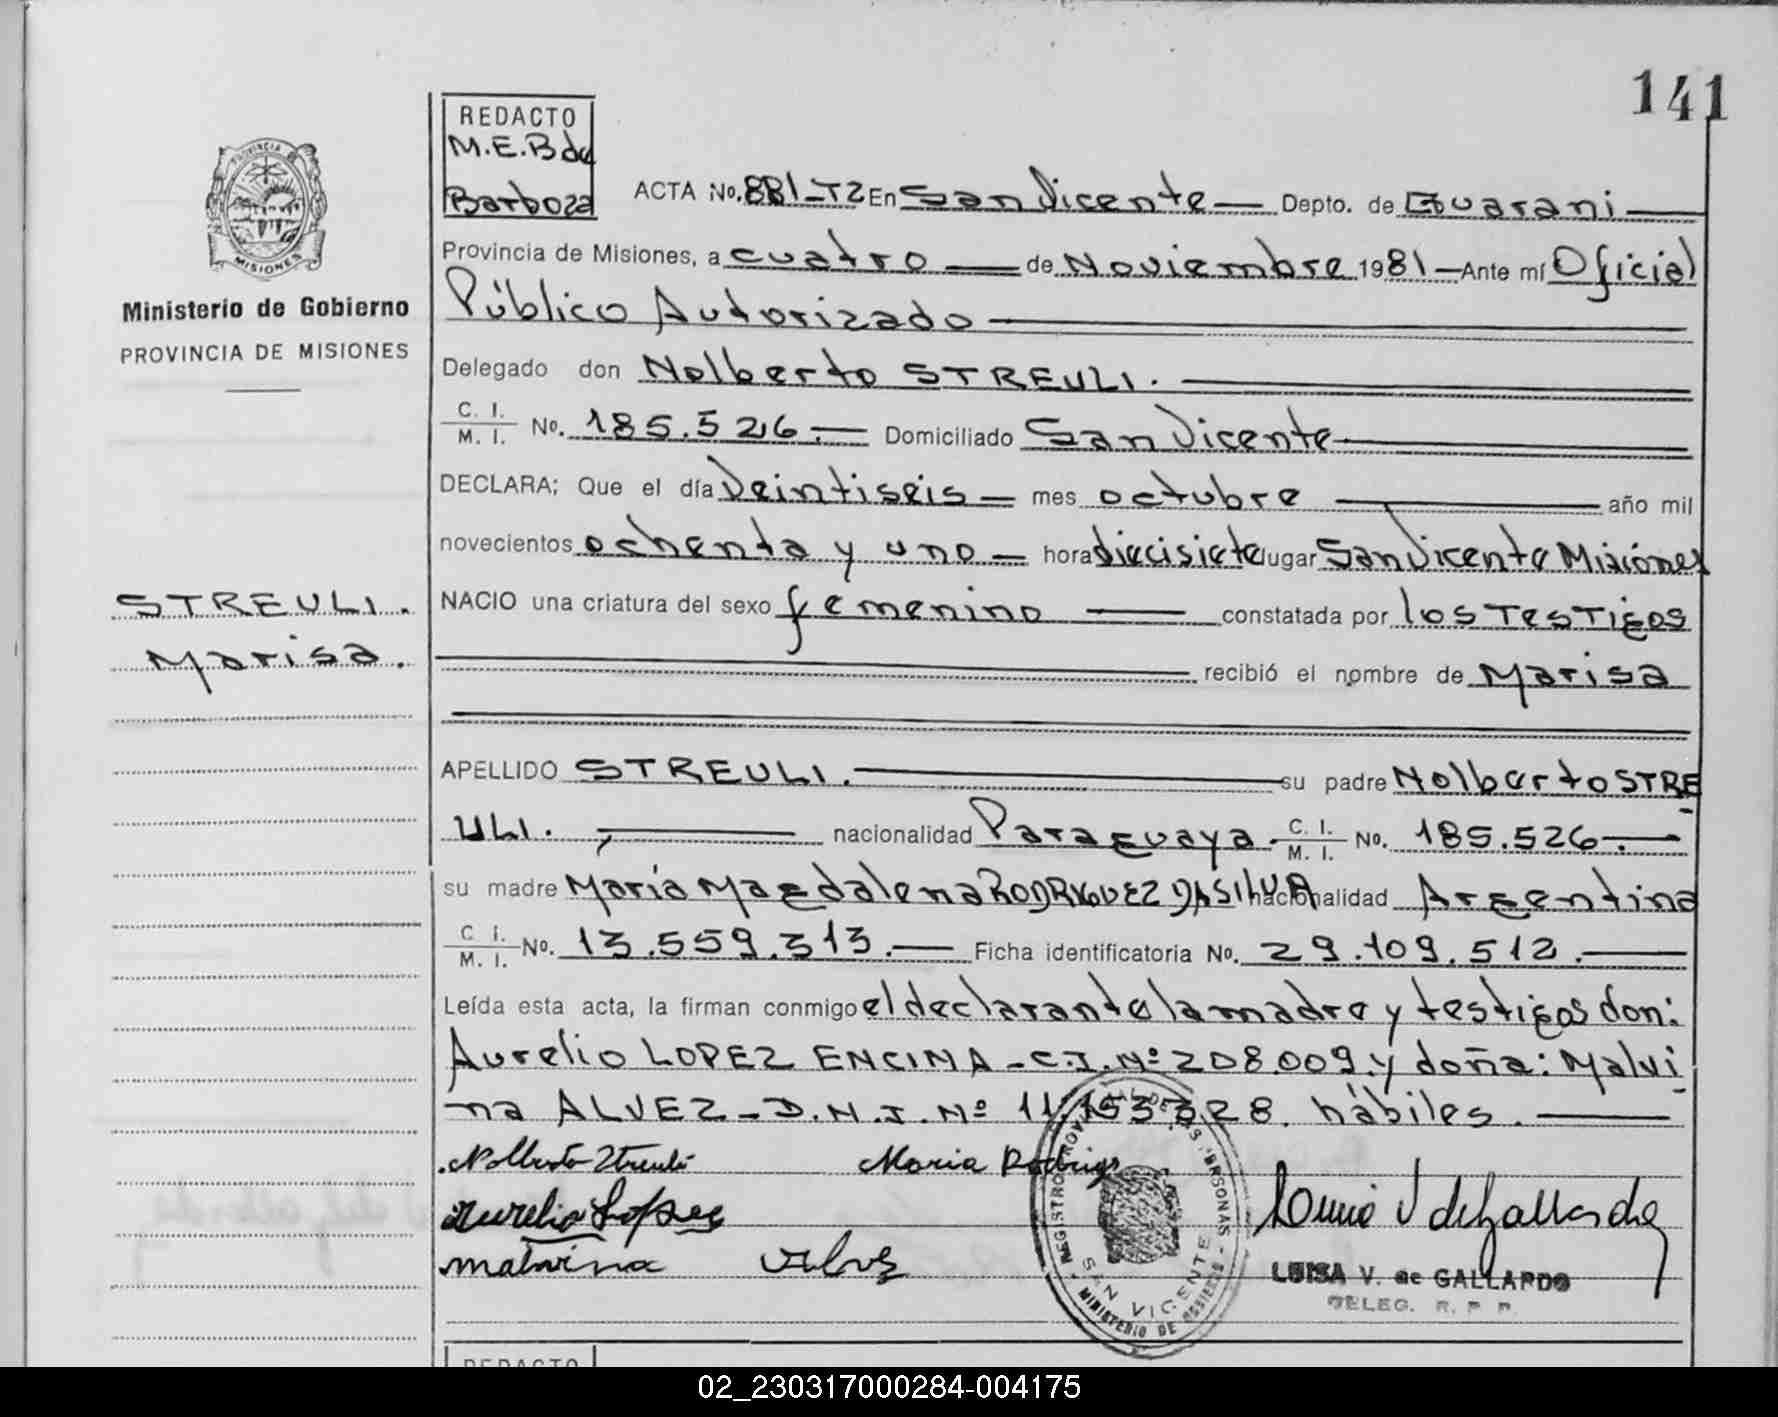 141
REDACTO
M.E.B de
Barboza
ACTA No. 881-T2 En San Vicente Depto. de Guarani
Provincia de Misiones, a cuatro de Noviembre 1981 Ante mí Oficial
Público Autorizado
Delegado don Nolberto STREULI.
C. I. / M. I. No. 185.526. Domiciliado San Vicente
DECLARA; Que el día Veintiseis mes octubre año mil
novecientos ochenta y uno hora diecisiete lugar San Vicente Misiones
NACIO una criatura del sexo femenino constatada por los Testigos
recibió el nombre de Marisa
APELLIDO STREULI. su padre Nolberto STRE
ULI. nacionalidad Paraguaya. C. I. / M. I. No. 185.526.
su madre María Magdalena RODRIGUEZ DA SILVA nacionalidad Argentina
C. I. / M. I. No. 13.559.313. Ficha identificatoria No. 29.109.512.
Leída esta acta, la firman conmigo el declarante la madre y testigos don:
Aurelio LOPEZ ENCINA - C.I. Nº 208.009. y doña: Malvi
na ALVEZ - D.N.I. Nº 11. hábiles.
Nolberto Streuli Maria Rodrigs
Aurelio Lopez
malvina
LUISA V. de GALLARDO
DELEG. R. P. P.
SAN VICENTE
MINISTERIO DE
PROVINCIA DE
MISIONES
Ministerio de Gobierno
PROVINCIA DE MISIONES
STREULI.
Marisa.
REDACTO
02_230317000284-004175